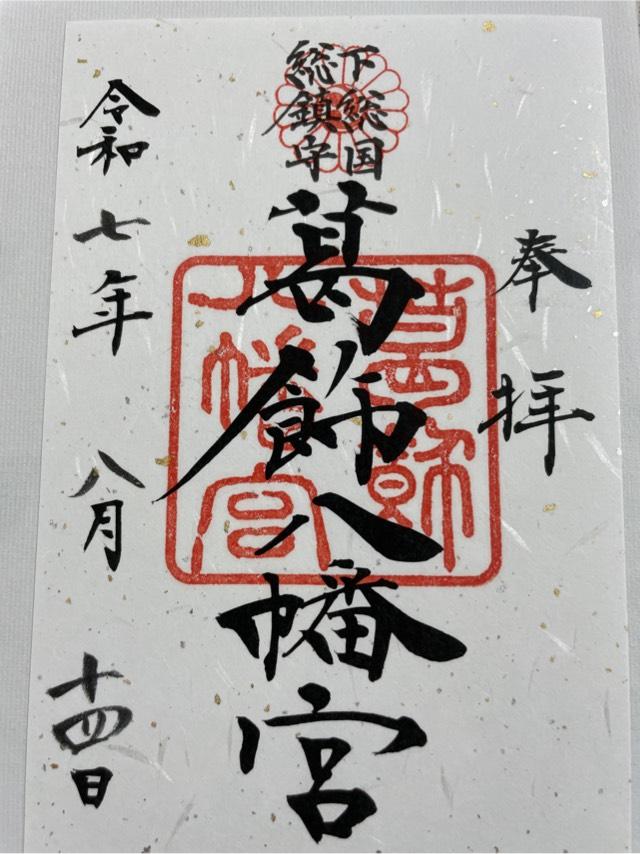 奉拝
下総国
総鎮守
葛飾八幡宮
葛飾
八幡宮
令和七年八月十四日